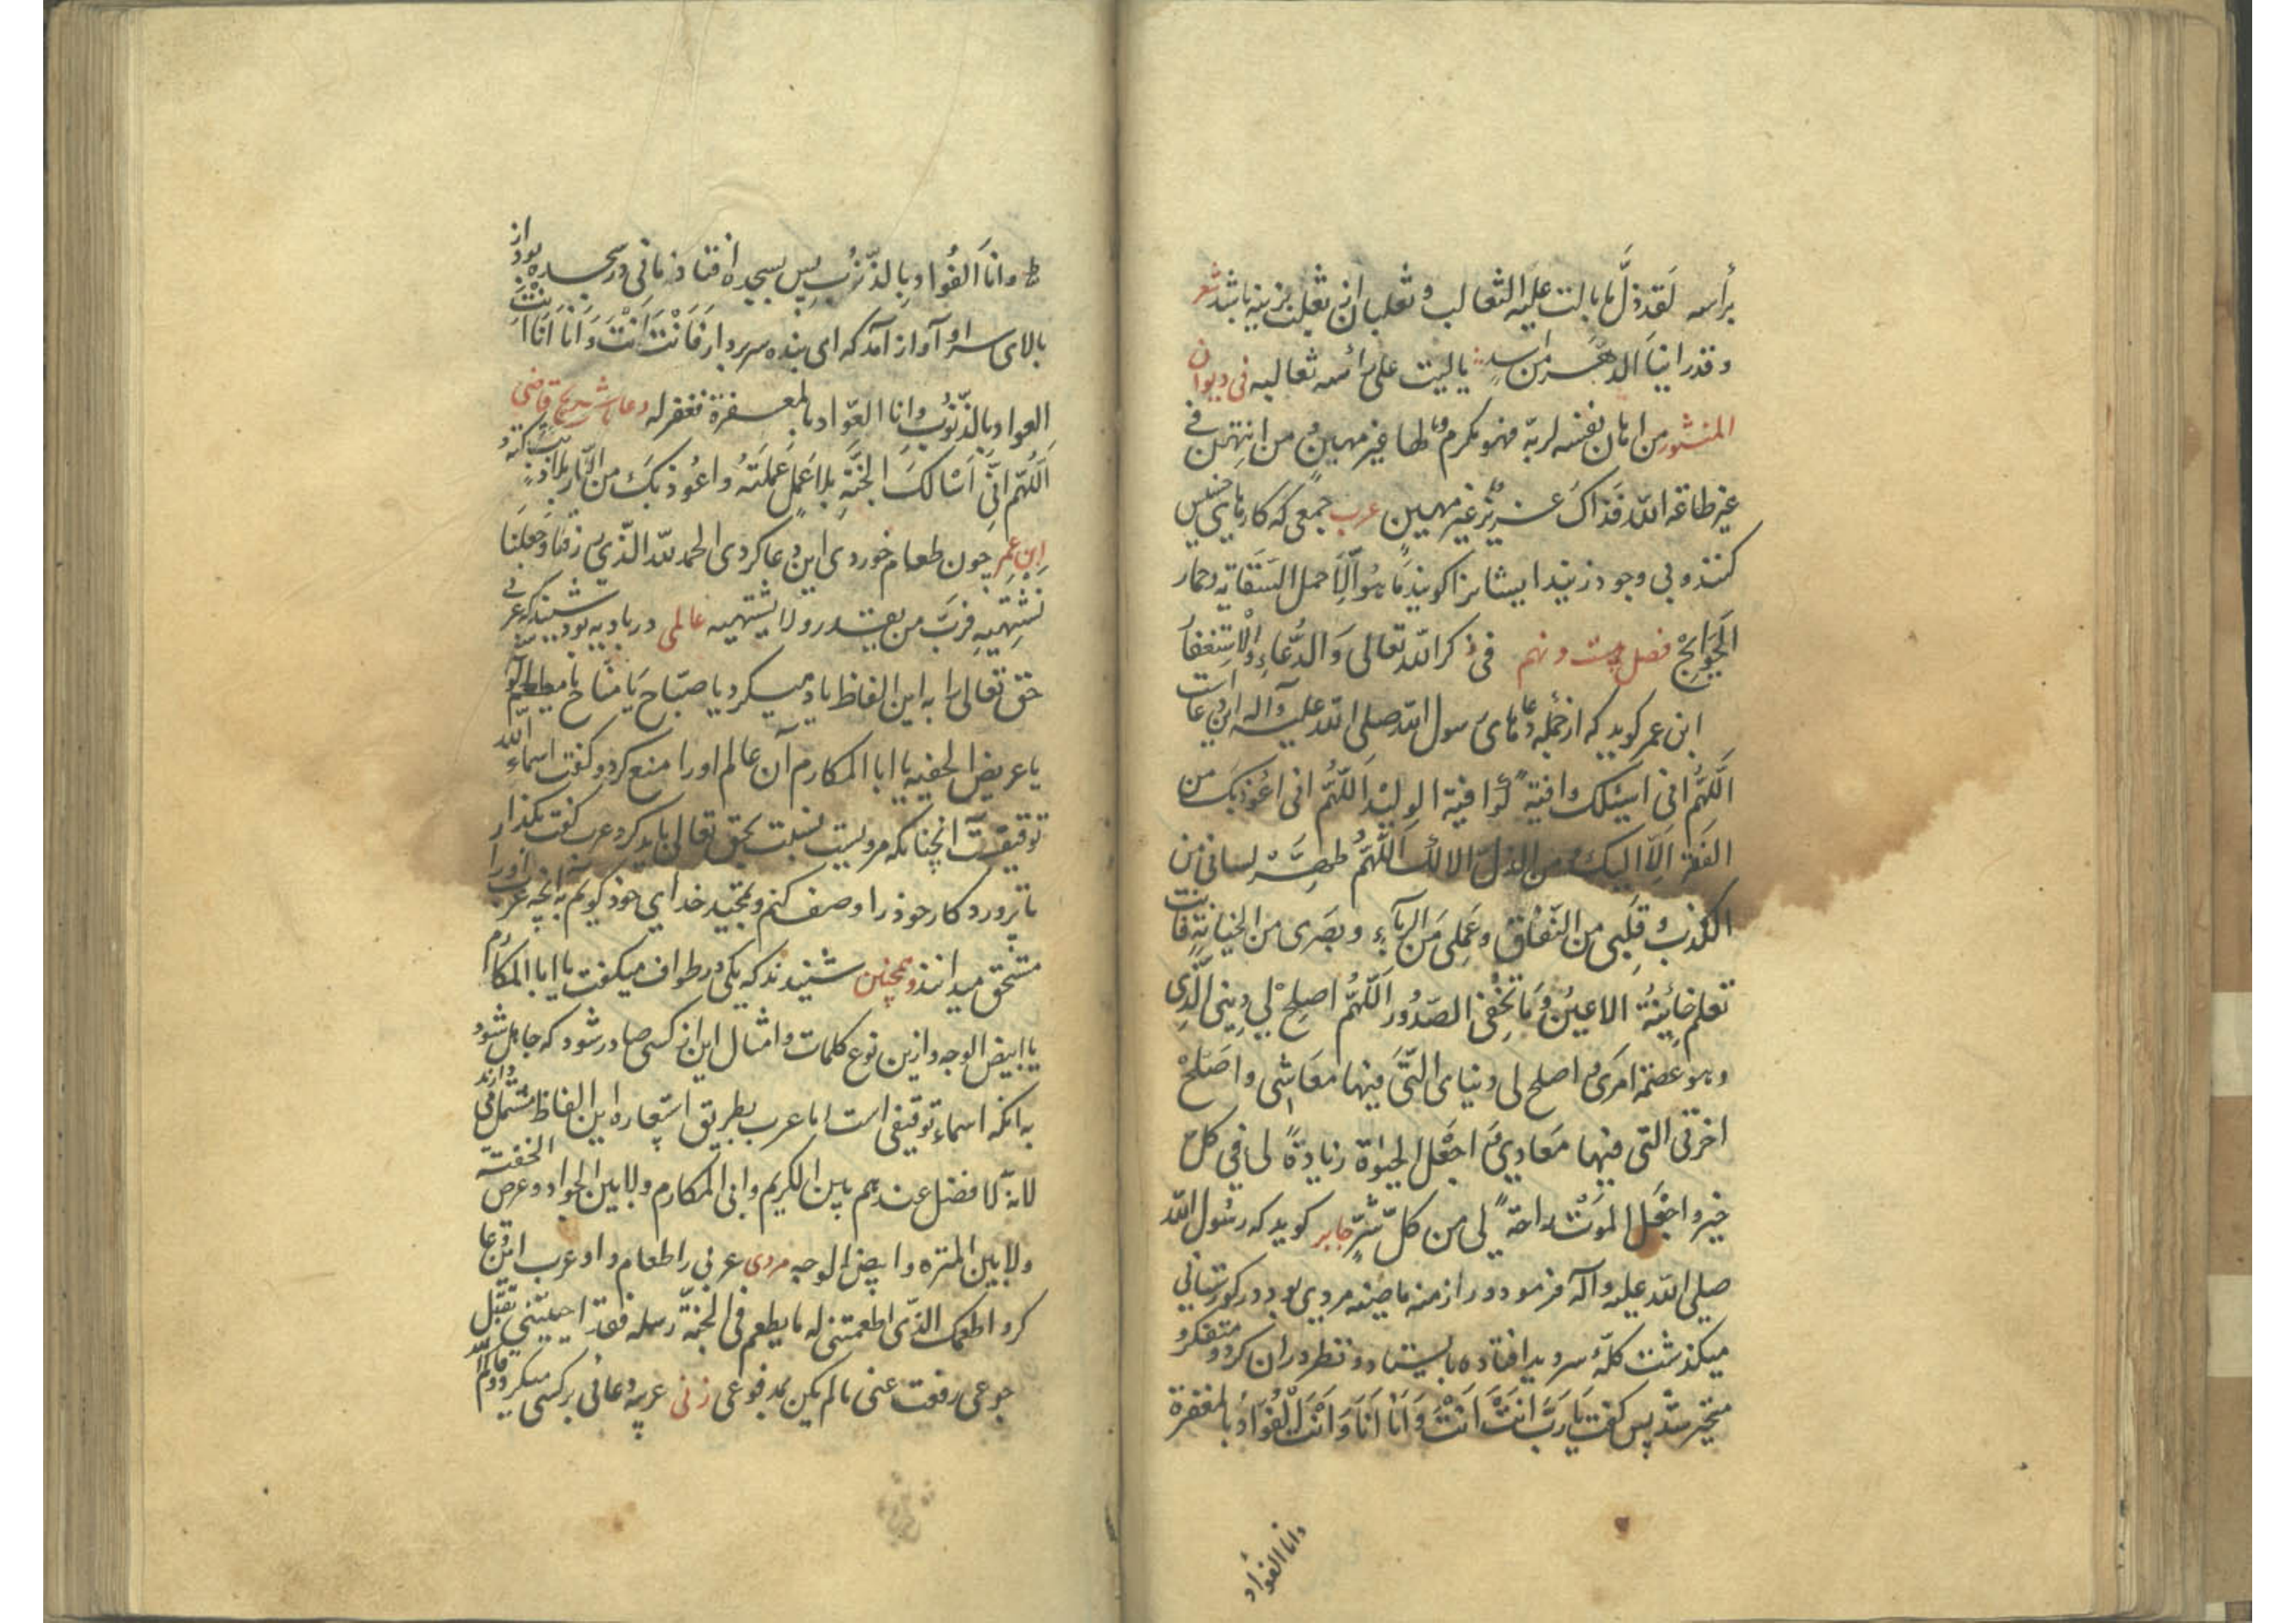 برأسه لقد ذلّ ما بالت علیه الثعالب و ثعلبان نر ثعلب نرینه باشد شعر
و قد راینا الدهر من اسد یا لیت علی رأسه ثعالبه فی دیوان
المنشور من اهان نفسه لربّه فهو مکرم لها غیر مهین و من انتهن فی
غیر طاعة الله فذاک عزیز غیر مهین عرب جمعی که کارهای خسیس
کنند و بی وجود زیند ایشانرا کویند ما هو الّا حمل السقایه و حمار
الحوایج فصل بیست و نهم فی ذکر الله تعالی و الدّعاء و الاستغفار
ابن عمر کوید که از جمله دعاهای رسول الله صلی الله علیه و آله این دعاست
اللّهمّ انی اسئلک واقیة کواقیة الولید اللّهمّ انی اعوذ بک من
الفقر الّا الیک و من الذلّ الا لک اللّهمّ طهّر لسانی من
الکذب و قلبی من النّفاق و عملی من الریاء و بصری من الخیانة فانت
تعلم خائنة الاعین و ما تخفی الصّدور اللّهمّ اصلح لی دینی الّذی
و هو عصمة امری و اصلح لی دنیای الّتی فیها معاشی و اصلح
اخرتی التی فیها معادی و اجعل الحیوة زیادة لی فی کلّ
خیر و اجعل الموت راحة لی من کلّ شرّ جابر کوید که رسول الله
صلی الله علیه و آله فرمود در ازمنه ماضیه مردی بود در کورستانی
میکذشت کلّه سر دید افتاده بایستاد و نظر در ان کرد و متفکر و
متحیر شد پس کفت یا ربّ انت انت و انا انا و انت العوّاد بالمغفرة
وانا العوّاد
و انا العوّاد بالذّنوب پس بسجده افتاد زمانی در سجده بود از
بالای سر او آواز آمد که ای بنده سر بردار فانت انت و انا انا انت
العواد بالذّنوب و انا العوّاد بالمغفرة فغفر له دعاء شریح قاضی
اللّهمّ انّی اسالک الجنّة بلا عمل عملته و اعوذ بک من النّار بلا ذنب ترکته
ابن عمر چون طعام خوردی این دعا کردی الحمد لله الّذی رزقنا و جعلنا
نشتهیه فربّ من یقدر و لا یشتهیه عالمی در بادیه بود شنید که عربی
حق تعالی را به این الفاظ یاد میکرد یا صبّاح یا منّاح یا مطعم
یا عریض الجفنه یا ابا المکارم آن عالم او را منع کرد و کفت اسماء الله
توقیفیّت آنچنانکه مرویست نسبت بحق تعالی باید کرد عرب کفت بکذار
تا پروردکار خود را وصف کنم و تمجید خدای خود کویم به آنچه عرب او را
مستحق میدانند و همچنین شنیدند که یکی در طواف میکفت یا ابا المکارم
یا ابیض الوجه و ازین نوع کلمات و امثال این از کسی صادر شود که جاهل شود
به آنکه اسماء توقیفی است اما عرب بطریق استعاره این الفاظ مستعمل دارند
لانّه لا فضل عندهم بین الکریم و ابی المکارم و لا بین الجواد و عریض الجفنة
و لا بین المنزه و ابیض الوجه مردی عربی را طعام داد عرب این دعا
کرد اطعمک الذّی اطعمتنی له ما یطعم فی الجنّة رسله فقد احییتنی بقتل
جوعی و دفعت عنی ما لم یکن بمدفوعی زنی عربیه دعائی بر کسی میکرد